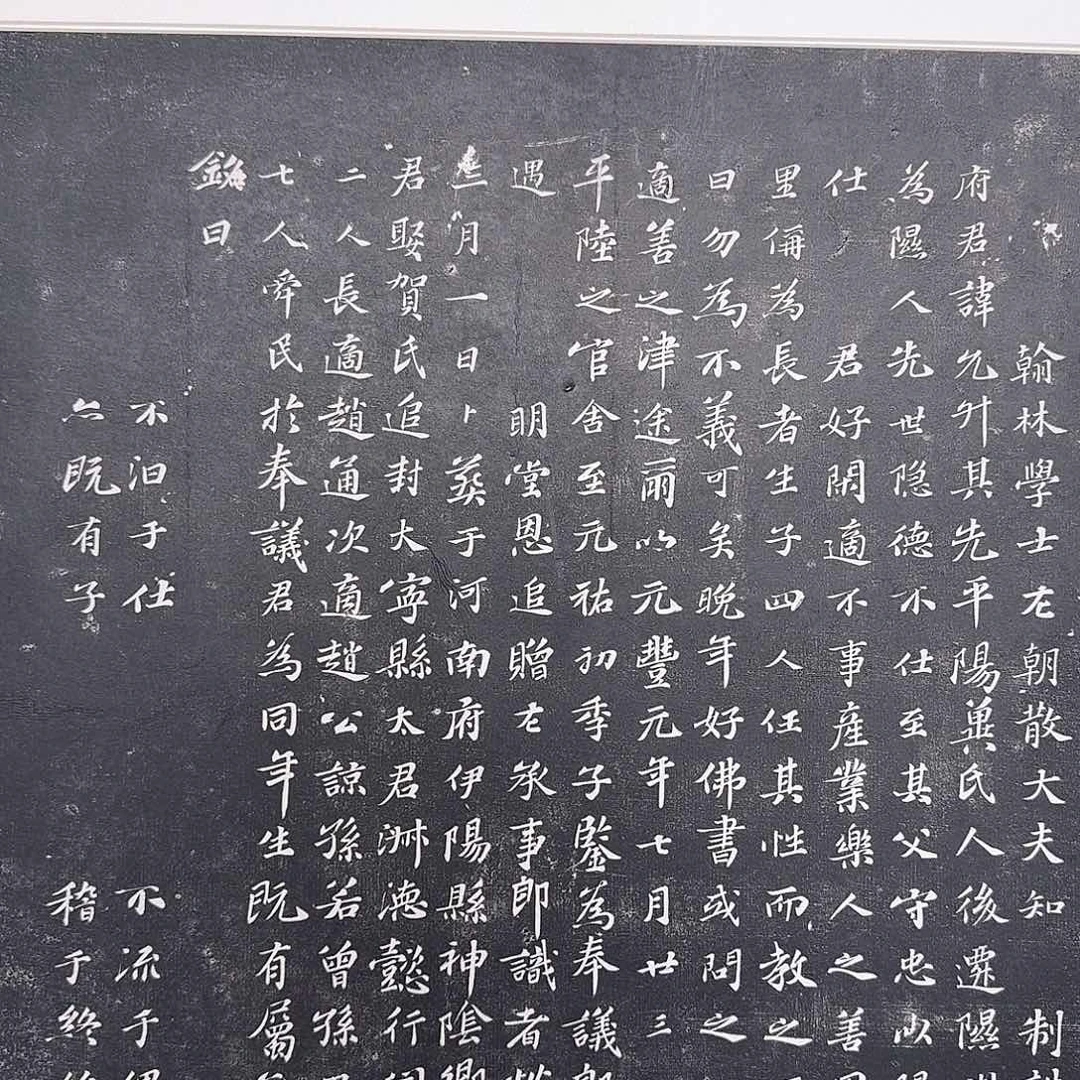 翰林學士左朝散大夫知 制
府君諱允升其先平陽冀氏人後遷隰
為隰人先世隐德不仕至其父守忠以
仕 君好閑適不事產業樂人之善
里偁為長者生子四人任其性而教之
曰勿為不義可矣晚年好佛書或問之
適善之津途爾以元豐元年七月廿三
平陸之官舍至元祐初季子鑒為奉議
遇 明堂恩追贈左承事郎識者
三月一日卜葬于河南府伊陽縣神陰鄉
君娶賀氏追封大寧縣太君淋德懿行
二人長適趙通次適趙公諒孫若曾孫
七人舜民於奉議君為同年生既有屬
銘曰
不汩于仕 不流于
亦既有子 稽于終